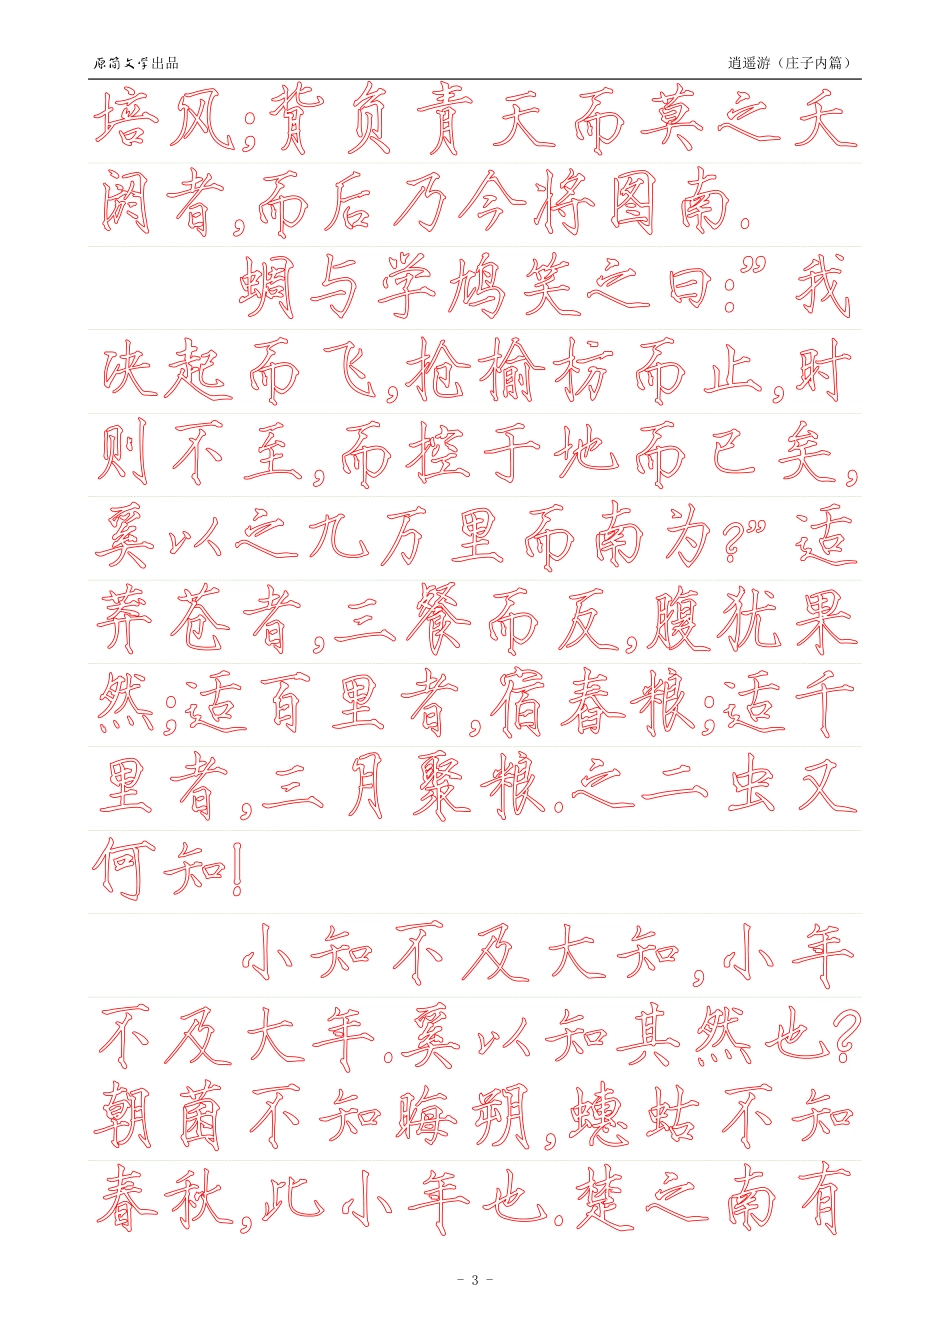 原简文学出品 逍遥游（庄子内篇）
培风;背负青天而莫之夭
阏者,而后乃今将图南.
蜩与学鸠笑之曰:”我
决起而飞,抢榆枋而止,时
则不至,而控于地而已矣,
奚以之九万里而南为?”适
莽苍者,三餐而反,腹犹果
然;适百里者,宿舂粮;适千
里者,三月聚粮.之二虫又
何知!
小知不及大知,小年
不及大年.奚以知其然也?
朝菌不知晦朔,蟪蛄不知
春秋,此小年也.楚之南有
- 3 -